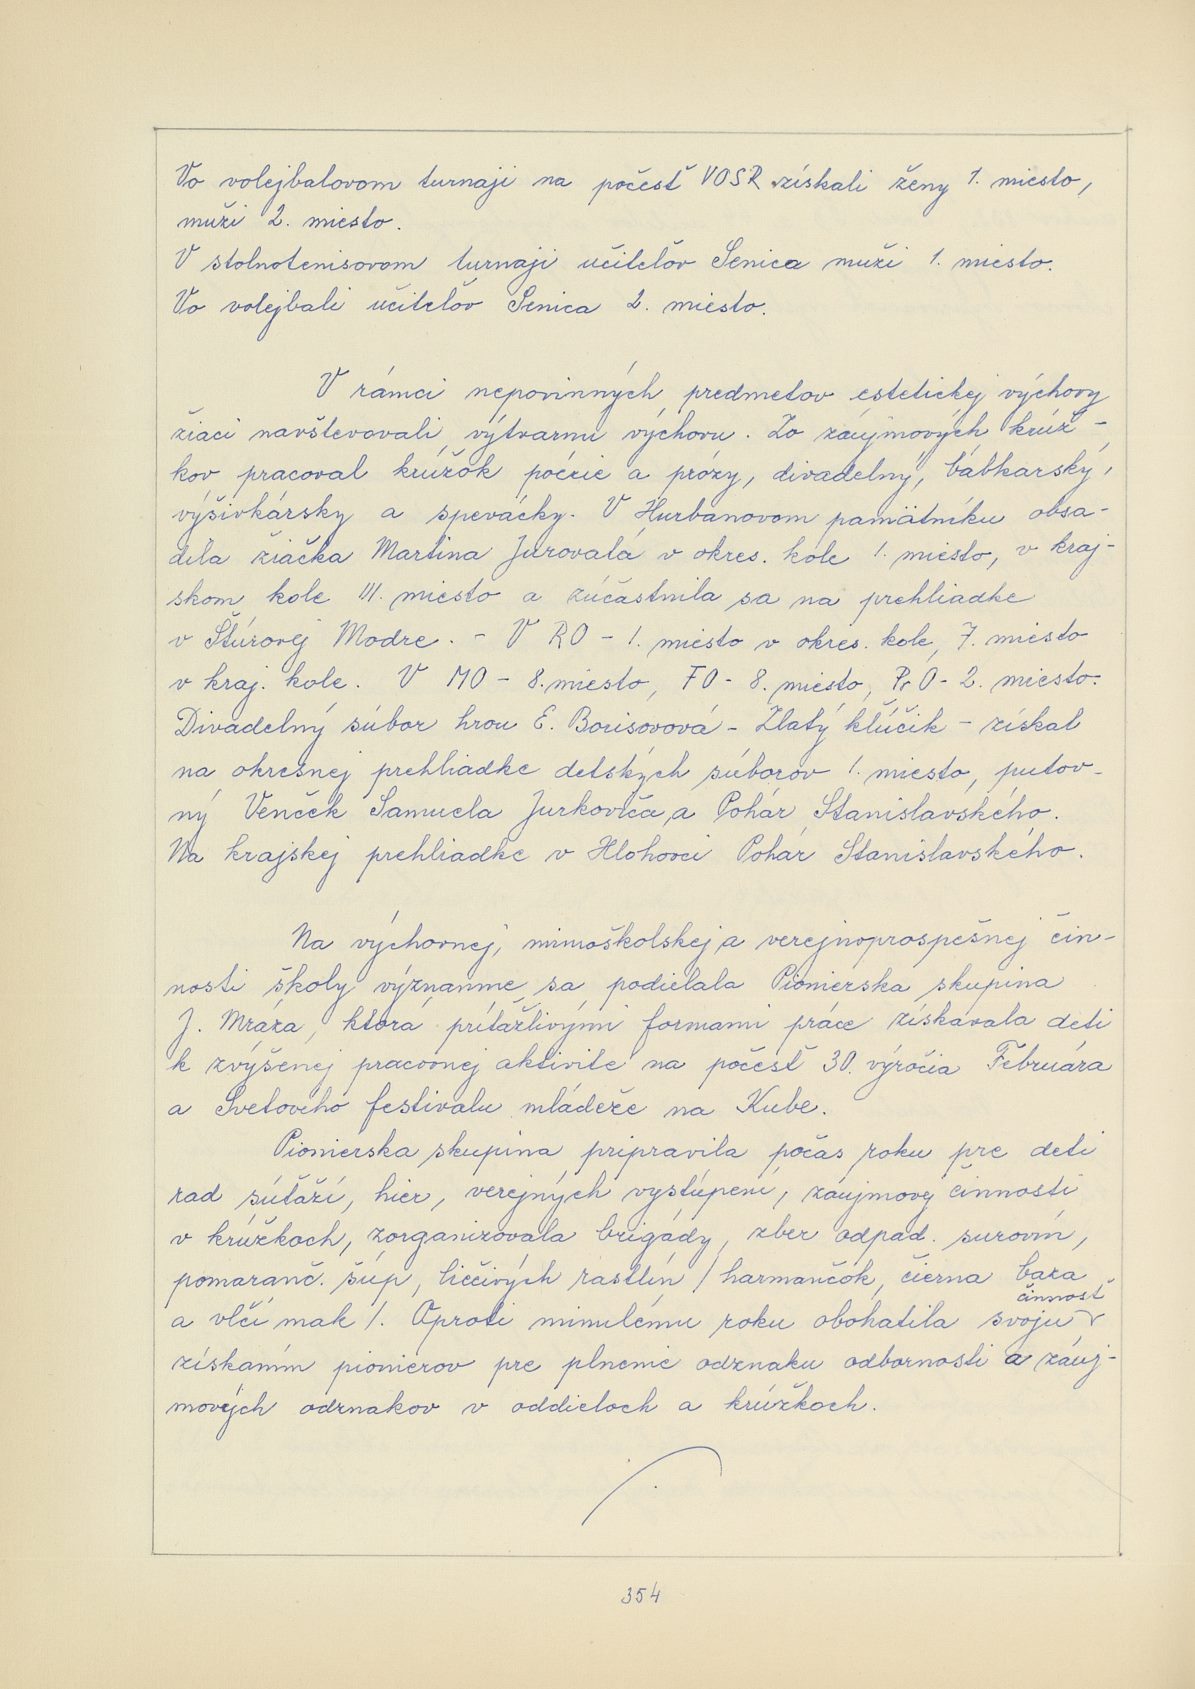 Vo volejbalovom turnaji na počesť VOSR získali ženy 1. miesto,
muži 2. miesto.
V stolnotenisovom turnaji učiteľov Senica muži 1. miesto.
Vo volejbali učiteľov Senica 2. miesto.
V rámci nepovinných predmetov estetickej výchovy
žiaci navštevovali výtvarnú výchovu. Zo záujmových krúž-
kov pracoval krúžok poézie a prózy, divadelný, bábkarský,
výšivkársky a spevácky. V Hurbanovom pamätníku obsa-
dila žiačka Martina Jurovatá v okres. kole 1. miesto, v kraj-
skom kole III. miesto a zúčastnila sa na prehliadke
v Štúrovej Modre. - V RO - 1. miesto v okres. kole, 7. miesto
v kraj. kole. V MO - 8. miesto, FO - 8. miesto, Pr O - 2. miesto.
Divadelný súbor hrou E. Borisovová - Zlatý kľúčik - získal
na okresnej prehliadke detských súborov 1. miesto, putov-
ný Venček Samuela Jurkoviča a Pohár Stanislavského.
Na krajskej prehliadke v Hlohovci Pohár Stanislavského.
Na výchovnej, mimoškolskej a verejnoprospešnej čin-
nosti školy význanme sa podielala Pionierska skupina
J. Mraza, ktorá príťažlivými formami práce získavala deti
k zvýšenej pracovnej aktivite na počesť 30. výročia Februára
a Svetového festivalu mládeže na Kube.
Pionierska skupina pripravila počas roku pre deti
rad súťaží, hier, verejných vystúpení, záujmovej činnosti
v krúžkoch, zorganizovala brigády, zber odpad. surovín,
pomaranč. šúp, liečivých rastlín / harmančok, čierna baza
a vlčí mak /. Oproti minulému roku obohatila svoju činnosť
získaním pionierov pre plnenie odznaku odbornosti a záuj-
mových odznakov v oddieloch a krúžkoch.
354